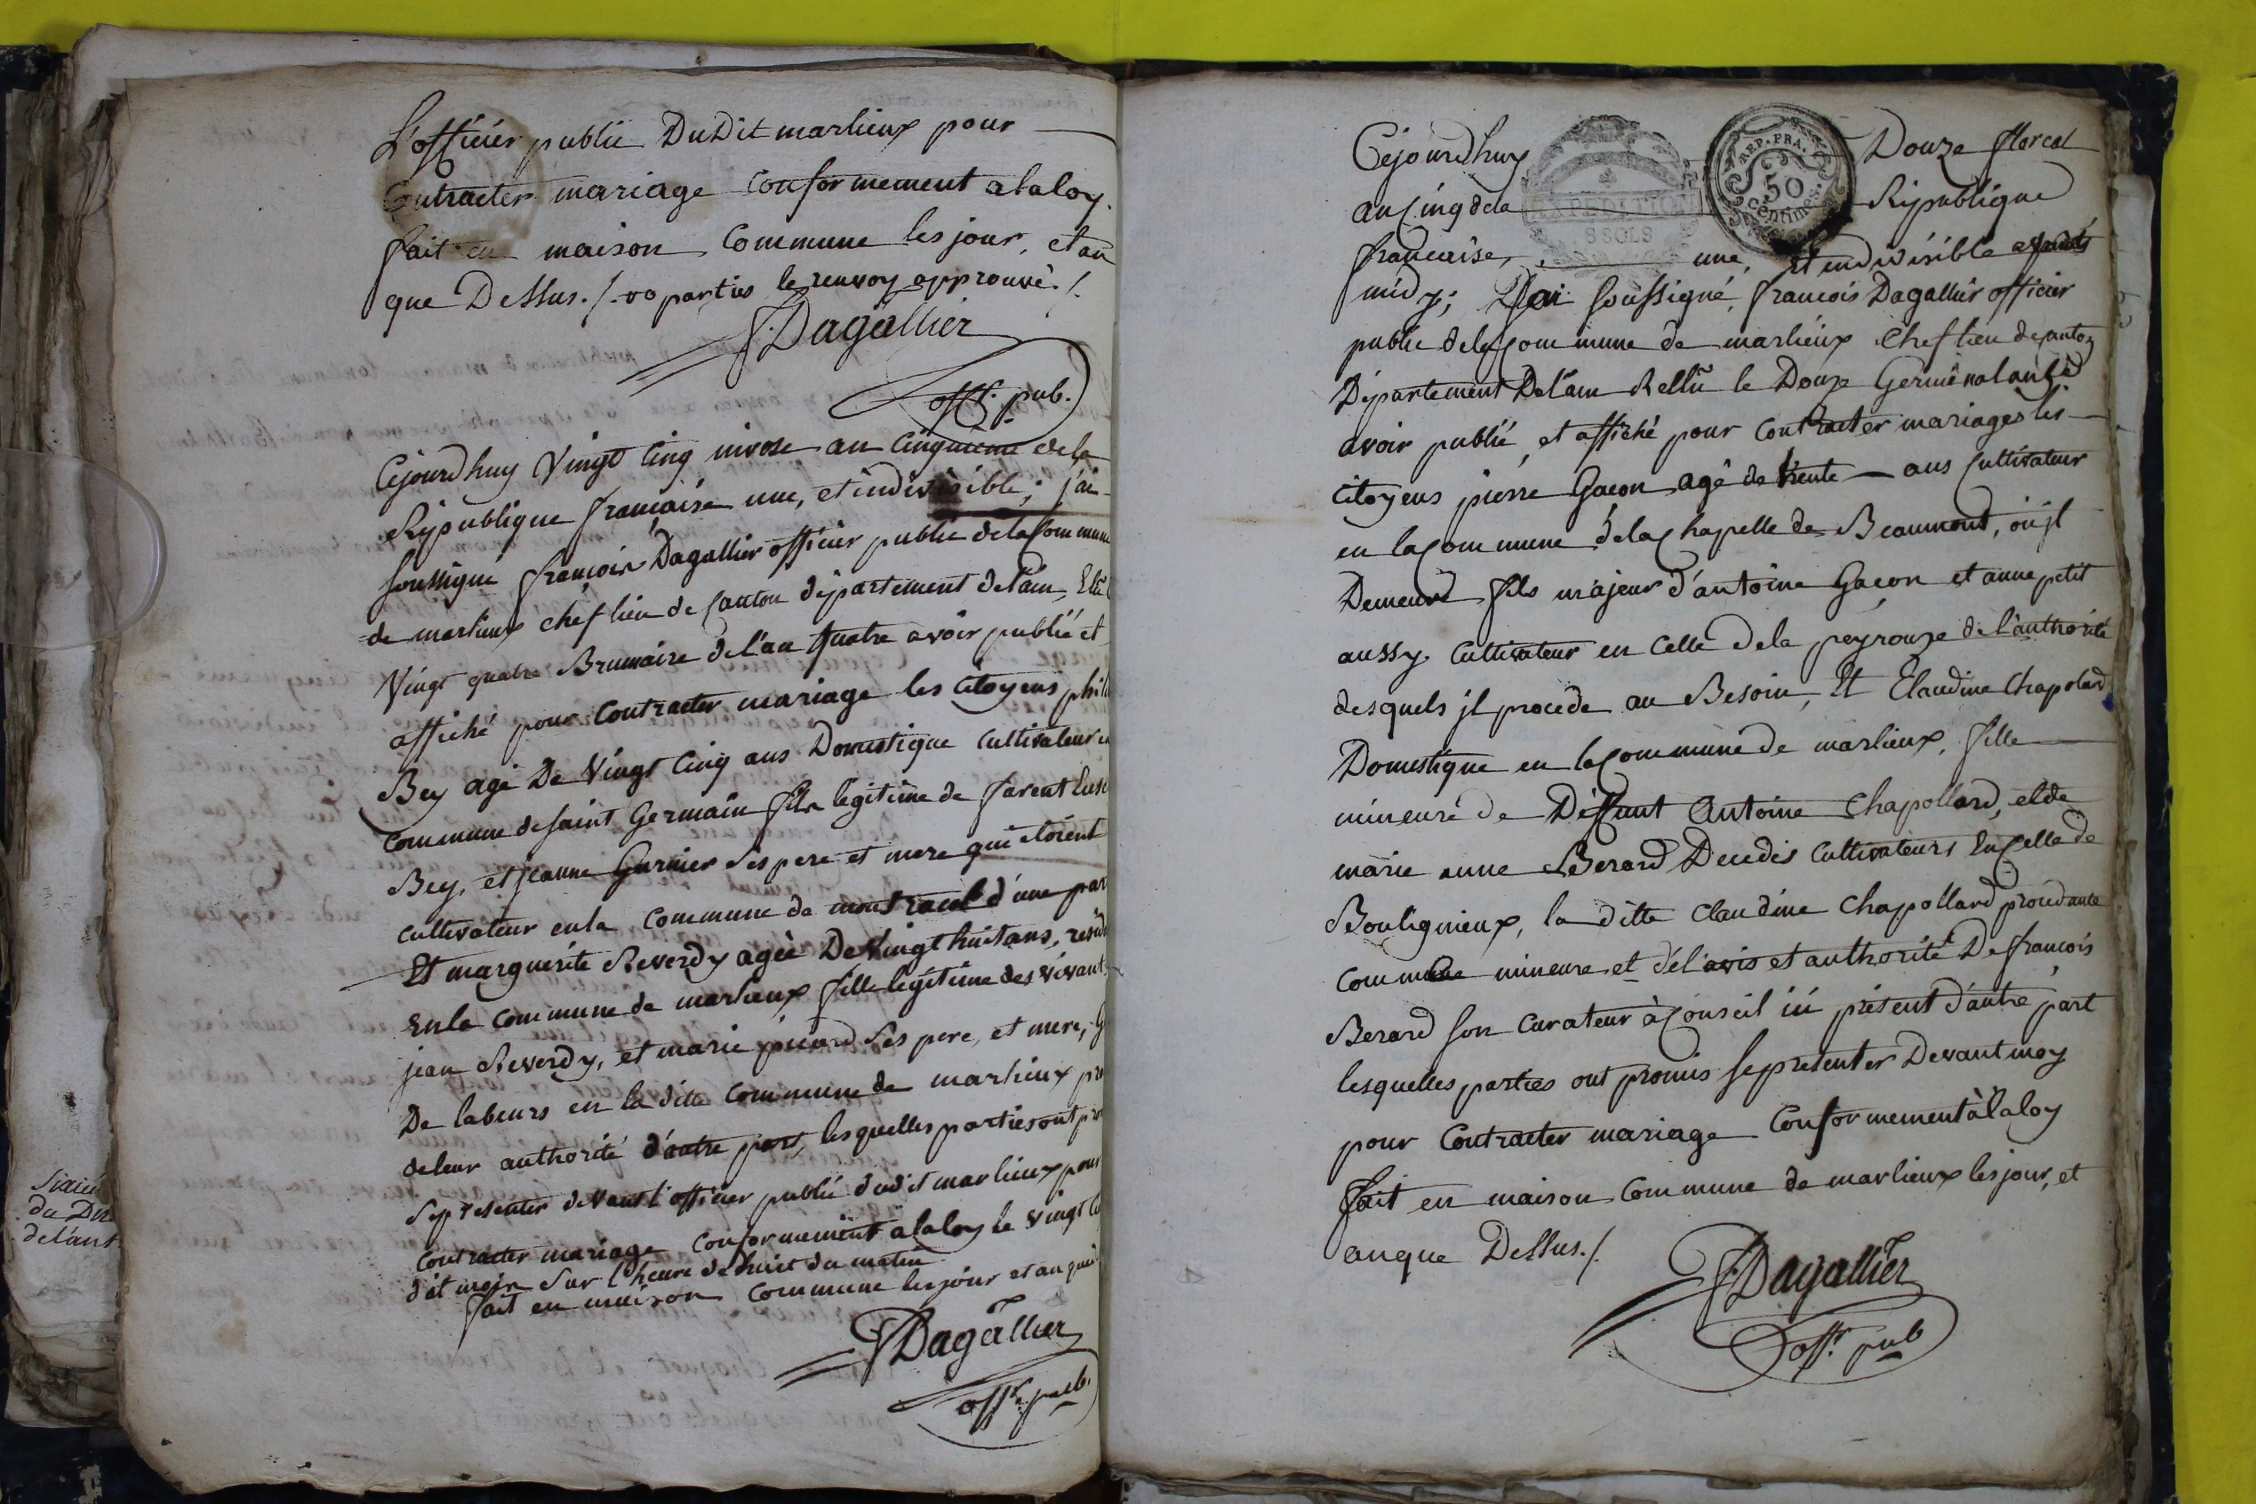 L'officier public DuDit marlieux pour
Contracter mariage conformement alaloy.
fait en maison Commune les jour, et an
que Dessus./. oo parties le renvoy approuvé./.
F. Dagallier
off. pub.
Cejourdhuy Vingt Cinq nivose an Cinquieme dela
Republique française une, et indivisible; j'ai
soussigné françois Dagallier officier public delaCommune
de marlieux chef lieu de Canton département del'ain,
Vingt quatre Brumaire del'an quatre avoir publié et
affiché pour Contracter mariage les Citoyens
Bey agé De Vingt Cinq ans Domestique Cultivateur
Commune desaint Germain fils legitime de
Bey, et jeanne Garnier ses pere et mere qui étoient
cultivateur enla Commune de d'une part
Et marguerite Reverdy agée DeVingthuit ans,
Enla Commune de marlieux fille legitime des vivant
jean Reverdy, et marie picard ses pere, et mere,
De labeurs en la ditte Commune de marlieux
deleur authorité d'autre part, lesquelles parties ont
sepresenter devant l'officier public dudit marlieux pour
contracter mariage conformement alaloy le vingt
dit mois Sur l'heure dehuit du matin
fait en maison Commune lesjour et an
F. Dagallier
off. pub.
Sixie
du
del'an
Cejourdhuy Douze floreal
anCinq dela Republique
française, une, et indivisible
midy; J'ai soussigné, françois Dagallier officier
public delaCommune de marlieux Chef lieu deCanton
Département Del'ain le Douze Germinal
avoir publié, et affiché pour Contracter mariages les
Citoyens pierre Gacon agé de trente ans Cultivateur
en laCommune delaChapelle de Beaumont, oùjl
Demeure fils majeur d'antoine Gacon et anne petit
aussy Cultivateur en Celle dela peyrouze de l'authorité
desquels jl procede au Besoin, Et Claudine Chapolard
Domestique en laCommune de marlieux, fille
mineure de Deffunt Antoine Chapollard, etde
marie anne Berard Decedés Cultivateurs EnCelle de
Bouligneux, la ditte Claudine Chapollard procedante
comme mineure et del'avis et authorité De françois
Berard son Curateur àConseil ici présent d'autre part
lesquelles parties ont promis sepresenter Devantmoy
pour Contracter mariage Conformement àlaloy
fait en maison Commune de marlieux lesjour, et
anque Dessus./.
F. Dagallier
off. pub
EXPEDITION
8 SOLS
REP. FRA.
50
centime